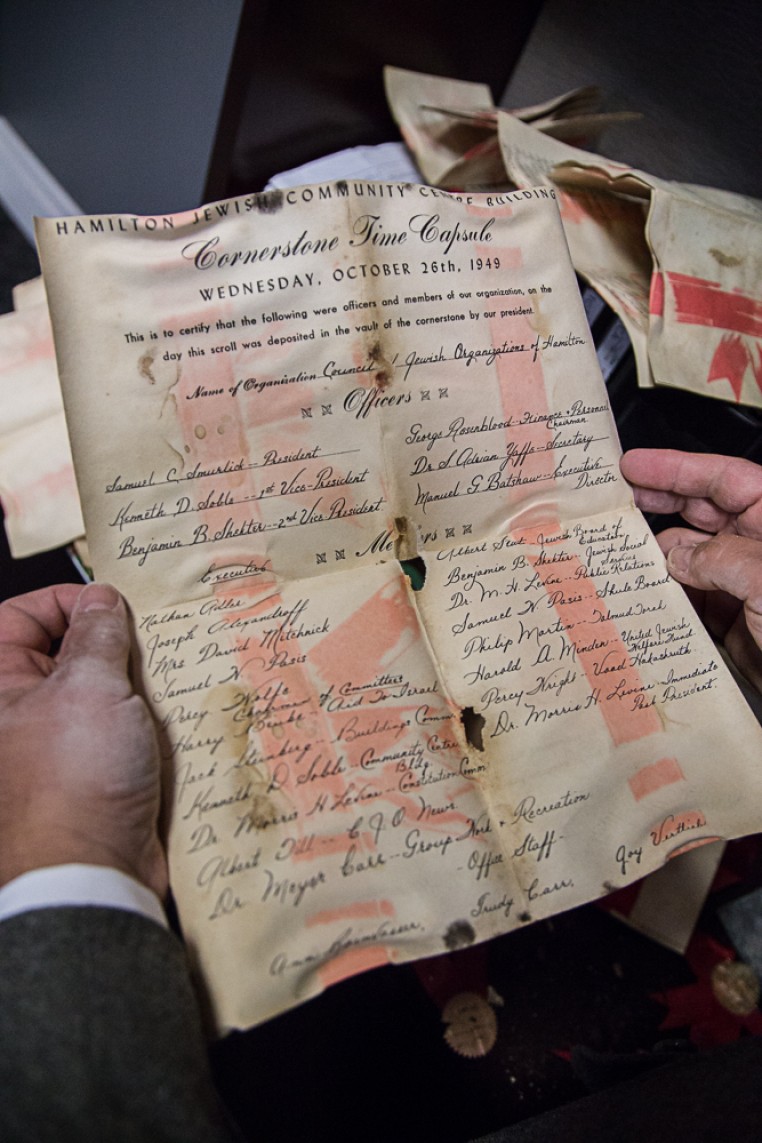 HAMILTON JEWISH COMMUNITY CENTRE BUILDING
Cornerstone Time Capsule
WEDNESDAY, OCTOBER 26th, 1949
This is to certify that the following were officers and members of our organization, on the
day this scroll was deposited in the vault of the cornerstone by our president.
Name of Organization Council / Jewish Organizations of Hamilton
Officers
Samuel C. Smurlick -- President
Kenneth D. Soble --- 1st Vice-President
Benjamin B. Shekter -- 2nd Vice President
George Rosenblood -- Finance & Personnel
Chairman
Dr S Adrian Yaffe -- Secretary
Manuel G Batshaw -- Executive
Director
Me rs
Executive
Nathan Adler
Joseph Alexandroff
Mrs David Mitchnick
Samuel N Pasis
Percy Wolfe
Chairmen of Committees
Harry -- Aid To Israel
Jack Steinberg -- Buildings Comm
Kenneth D Soble -- Community Centre
Bldg.
Dr. Morris H Levine -- Constitution Comm
Albert Till -- C J O News.
Dr Meyer Carr -- Group Work & Recreation
Albert -- Jewish Board of
Education
Benjamin B. Shekter -- Jewish Social
Services
Dr. M. H. Levine -- Public Relations
Samuel N Pasis -- Shule Board
Philip Martin -- Talmud Torah
Harold A. Minden -- United Jewish
Welfare Fund
Percy Wright -- Vaad Hakashruth
Dr. Morris H. Levine Immediate
Past President.
- Office Staff -
Ann Trudy Carr, Goy